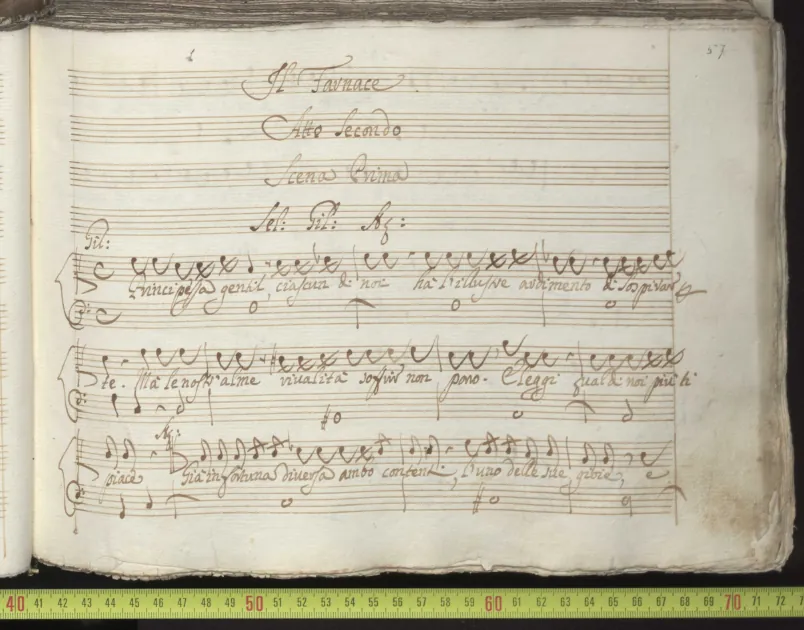 57
Il Farnace
Atto Secondo
Scena Prima
Sel: Gil: Aq:
Gil:
Principessa gentil, ciascun di noi ha l'illustre ardimento di sospirar
te. Ma le nostr'alme rivalità soffrir non pono. Eleggi qual di noi più ti
Aq:
piace Già in fortuna diversa ambo contenti, l'uno delle sue gioie, e
40 41 42 43 44 45 46 47 48 49 50 51 52 53 54 55 56 57 58 59 60 61 62 63 64 65 66 67 68 69 70 71 72